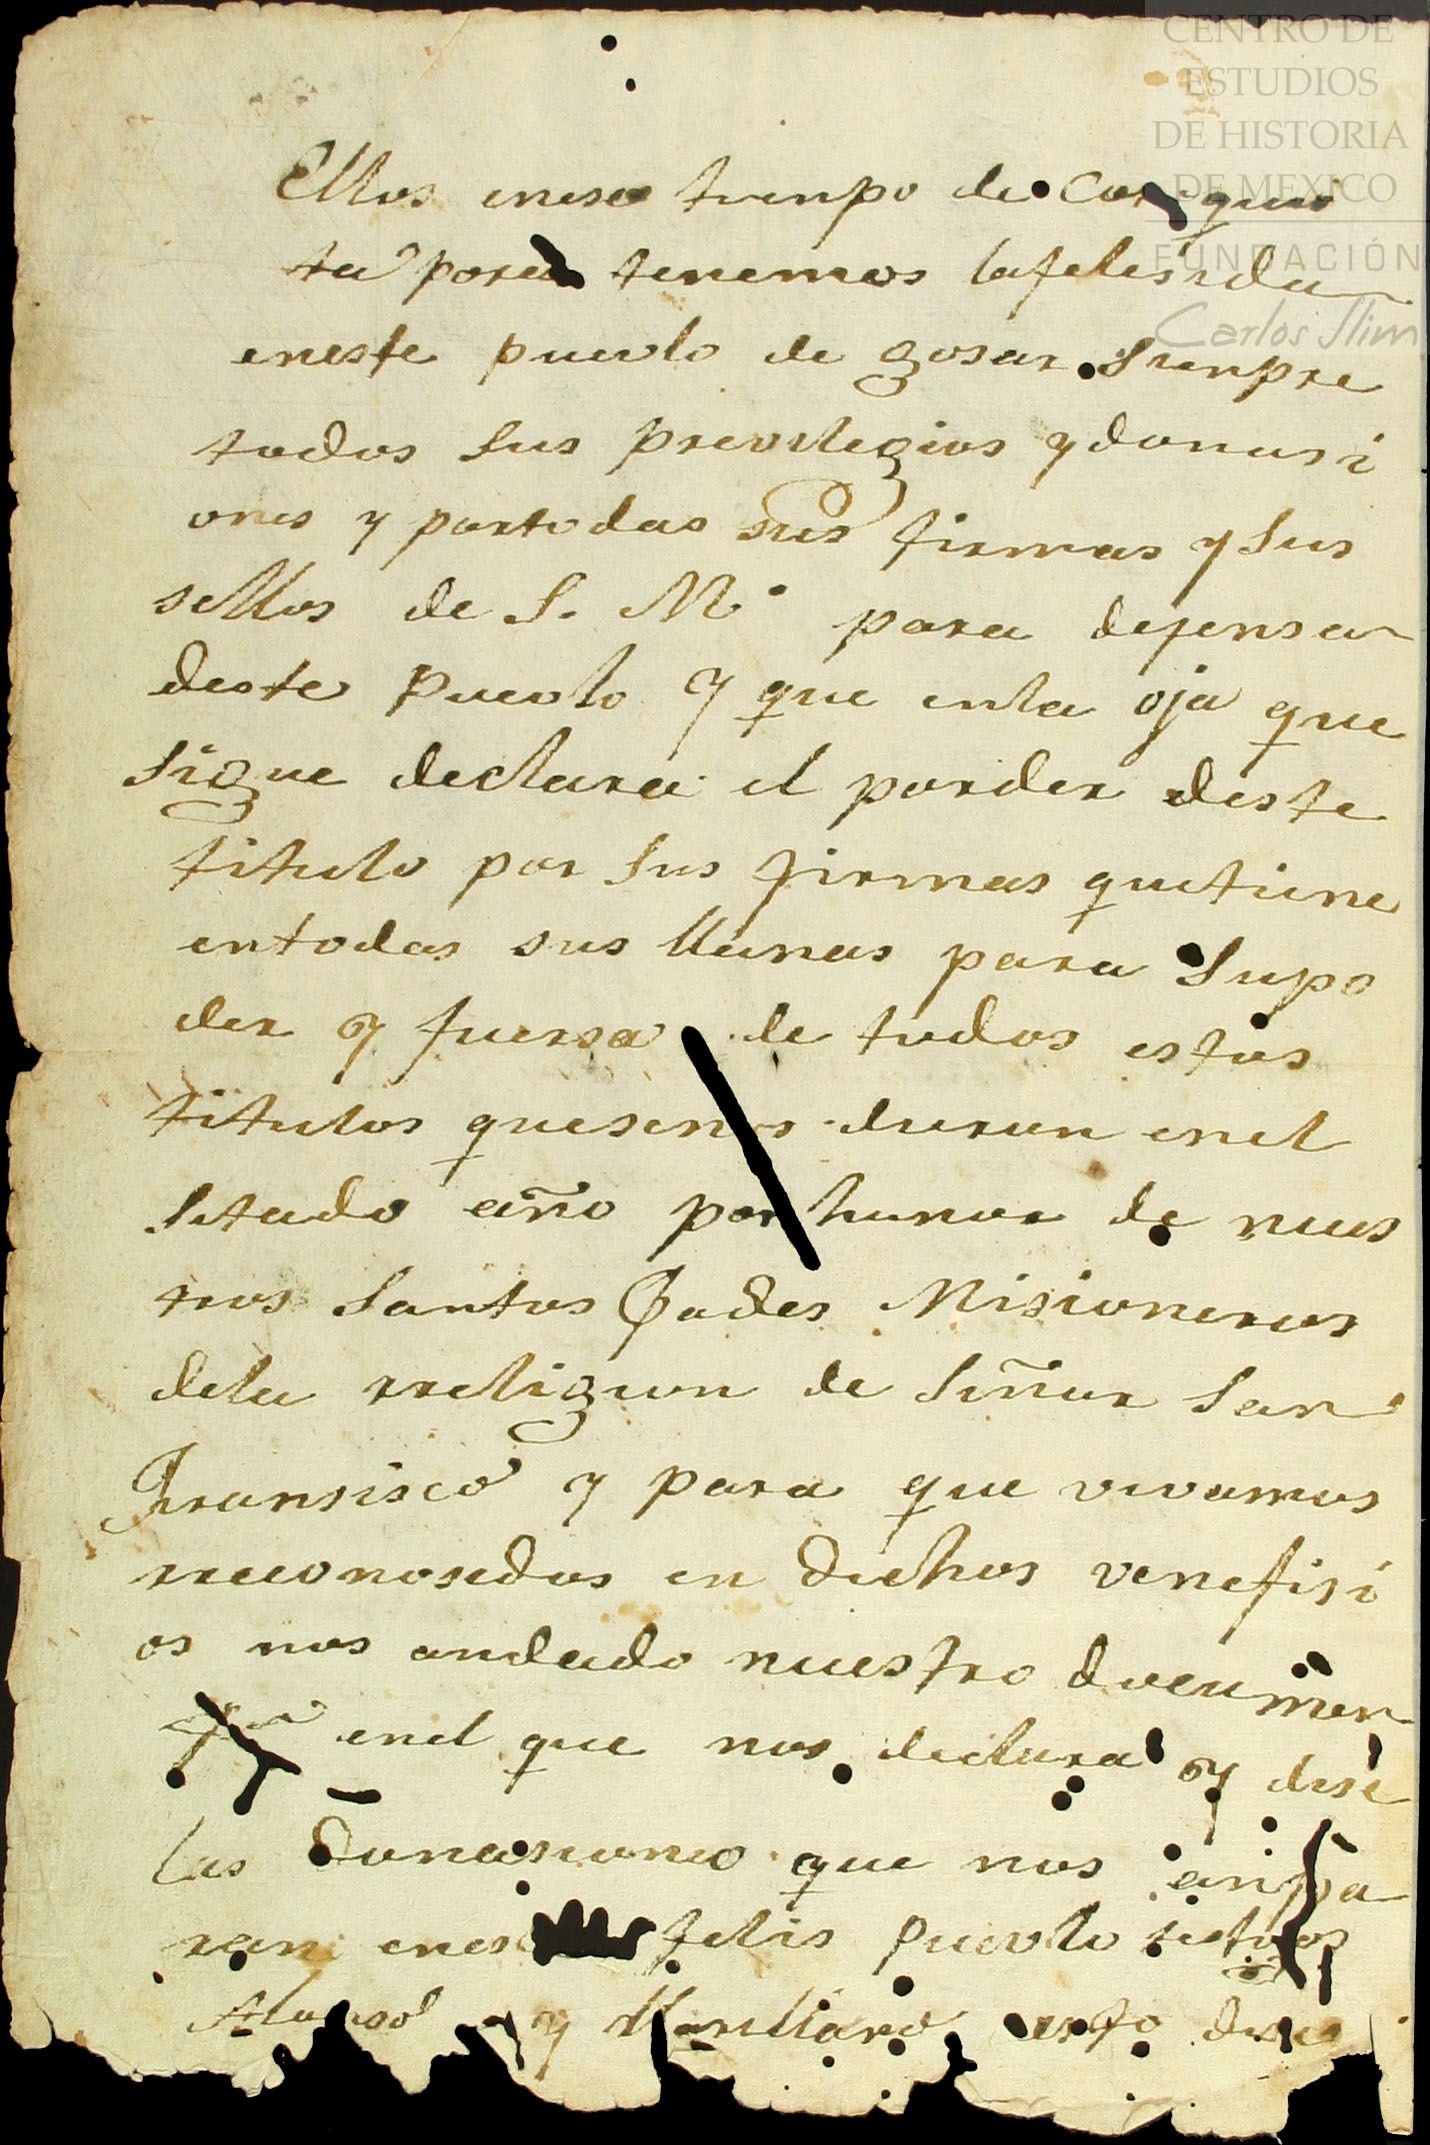 CENTRO DE
ESTUDIOS
DE HISTORIA
DE MEXICO
FUNDACIÓN
Carlos Slim
Ellos enese tienpo de conquis
ta porel tenemos lafelesida
eneste pueblo de gosar sienpre
todos sus previlegios y donasi
ones y portodas sus firmas y sus
sellos de S. M. para defensa
deste pueblo y que enla oja que
sigue declara el porder deste
titulo por sus firmas quetiene
entodas sus llanas para supo
der y fuersa de todos estos
titulos quesenos dieron enel
sitado año por honor de nues
tros santos Padres Misioneros
dela rreligion de señor san
Fransisco y para que vivamos
rreconosedos en dichos venefisi
os nos andado nuestro documen
enel que nos declara y dise
las donasiones que nos anpa
ran enes felis pueblo
y esto